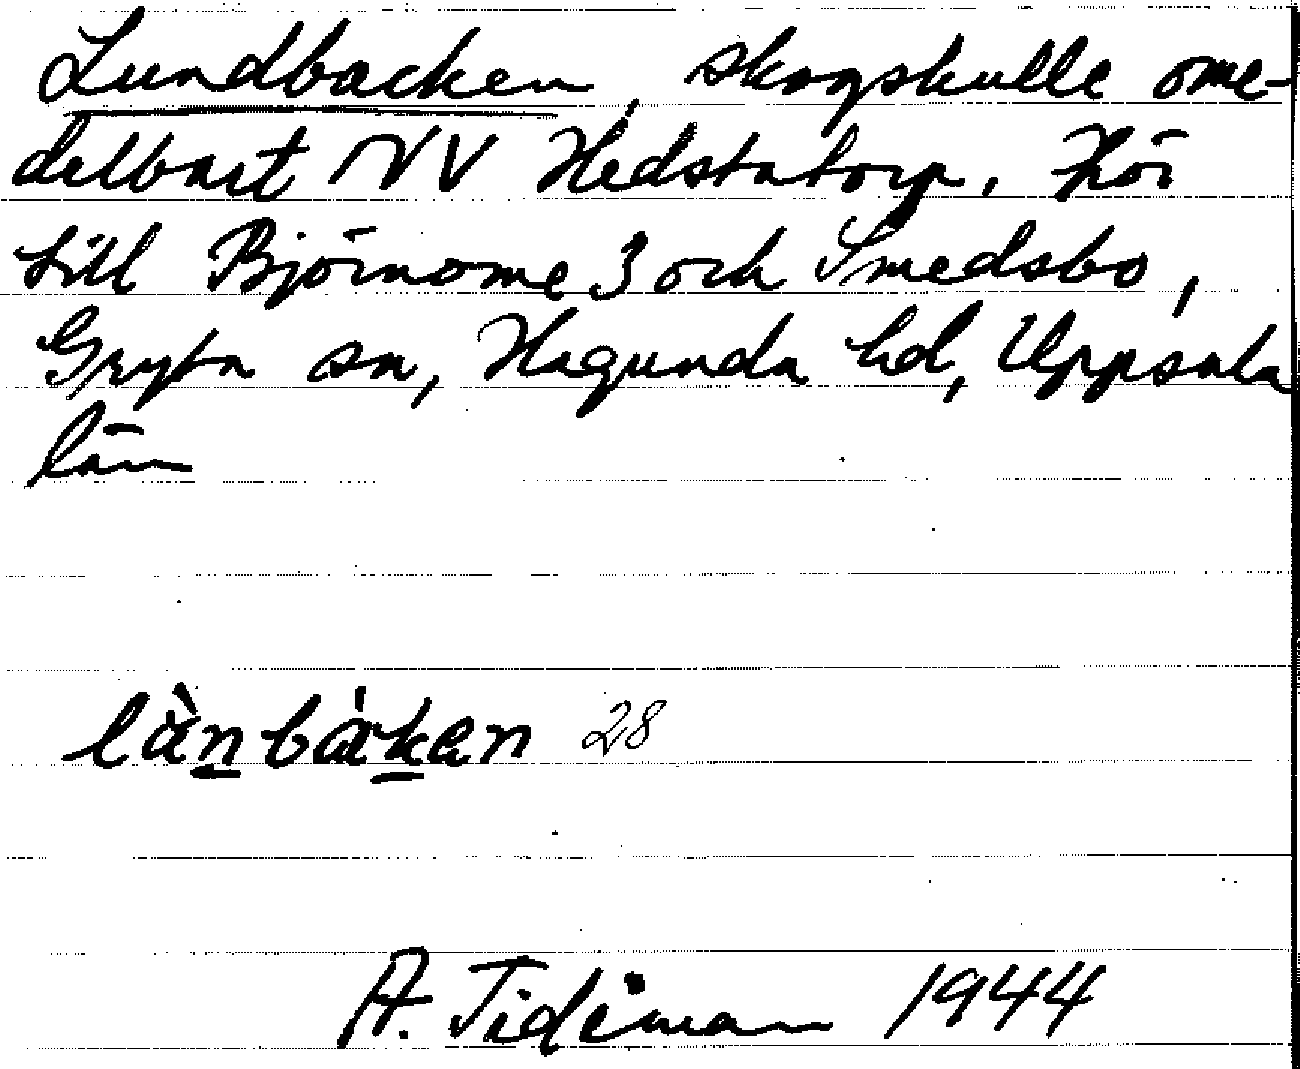 Lundbacken, skogskulle ome-
delbart NV Hedstatorp. Hör
till Björnome 3 och Smedsbo,
Gryta sn, Hagunda hd, Uppsala
län
lànbákən 28
A. Tideman 1944